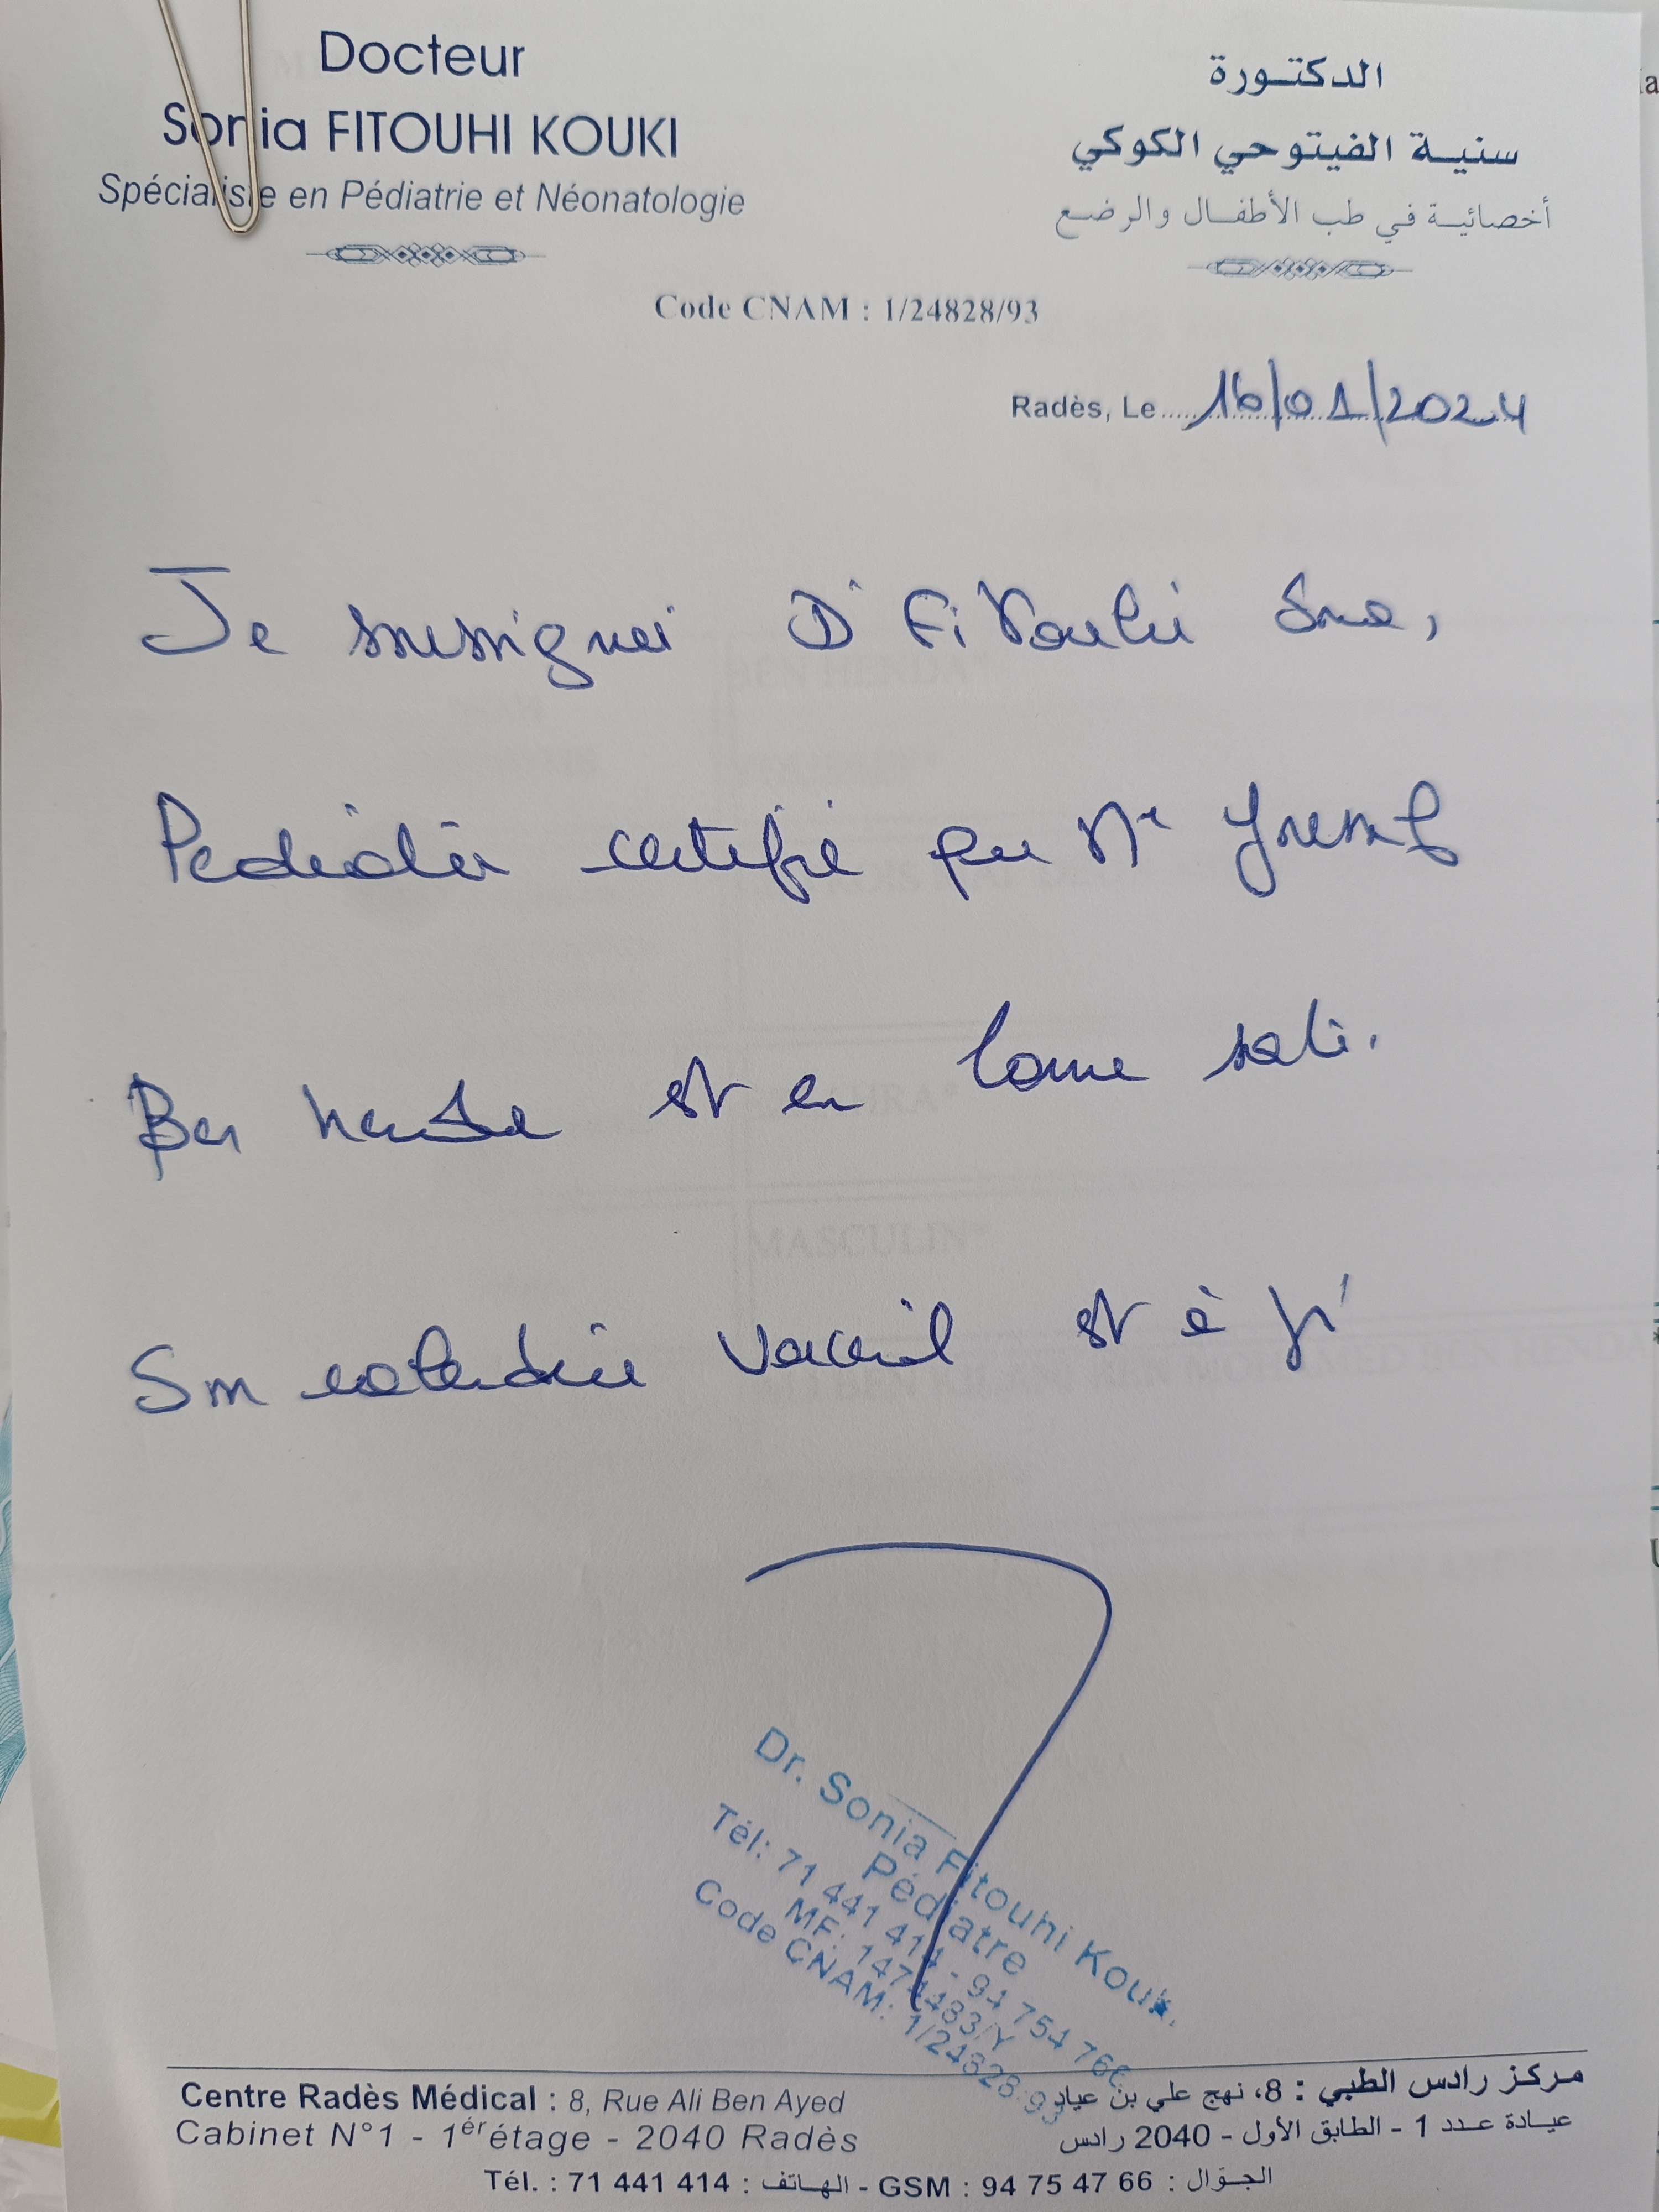 Docteur
Sonia FITOUHI KOUKI
Spécialiste en Pédiatrie et Néonatologie
الدكتورة
سنية الفيتوحي الكوكي
أخصائية في طب الأطفال والرضع
Code CNAM : 1/24828/93
Radès, Le 16/01/2024
Je soussigné Dr Fitouhi Sonia,
Pédiatre certifie que Mr Youssef
Ben henda est en bonne santé.
Son calendrier vaccinal est à jr
BEN HENDA*
MASCULIN*
Dr. Sonia Fitouhi Kouki
Pédiatre
Tél: 71 441 414 - 94 754 766
MF: 1474483/Y
Code CNAM: 1/24828/93
Centre Radès Médical : 8, Rue Ali Ben Ayed
Cabinet N°1 - 1ér étage - 2040 Radès
مركز رادس الطبي : 8، نهج علي بن عياد
عيادة عدد 1 - الطابق الأول - 2040 رادس
Tél. : 71 441 414 : الهاتف - GSM : 94 75 47 66 : الجوّال